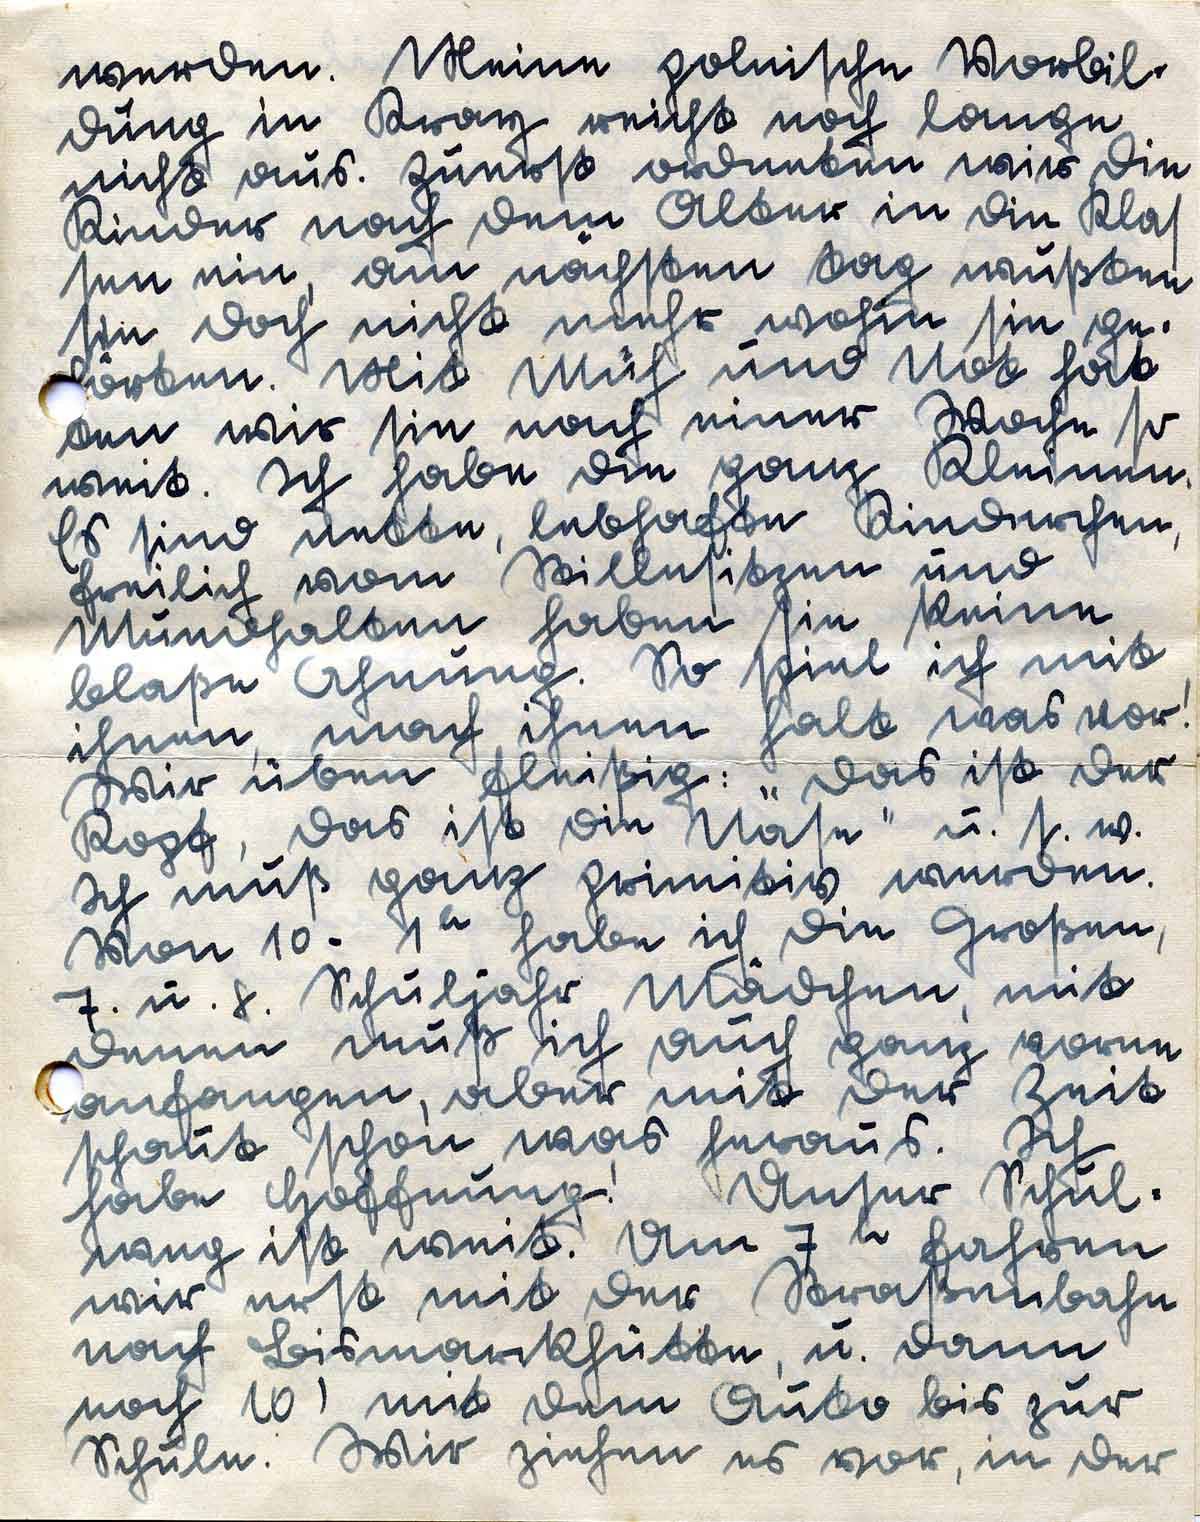 werden. Meine polnische Vorbil-
dung in Kray reicht noch lange
nicht aus. Zuerst ordneten wir die
Kinder nach dem Alter in die Klas
sen ein, am nächsten tag wußten
sie doch nicht mehr wohin sie ge-
hörten. Mit Müh und Not hat
ten wir sie nach einer Woche so
weit. Ich habe die ganz Kleinen.
Es sind nette, lebhafte Kinderchen,
freilich vom Stillesitzen und
Mundhalten haben sie keine
blaße Ahnung. So spiel ich mit
ihnen, mach ihnen halt was vor!
Wir üben fleißig: "das ist der
Kopf, das ist die Nase" u. s. w.
Ich muß ganz primitiv werden.
Von 10 - 1h habe ich die Großen,
7. u. 8. Schuljahr Mädchen, mit
denen muß ich auch ganz vorne
anfangen, aber mit der Zeit
schaut schon was heraus. Ich
habe Hoffnung! Unser Schul-
weg ist weit. Um 7h fahren
wir erst mit der Straßenbahn
nach Bismarckhütte, u. dann
noch 10' mit dem Auto bis zur
Schule. Wir ziehen es vor, in der